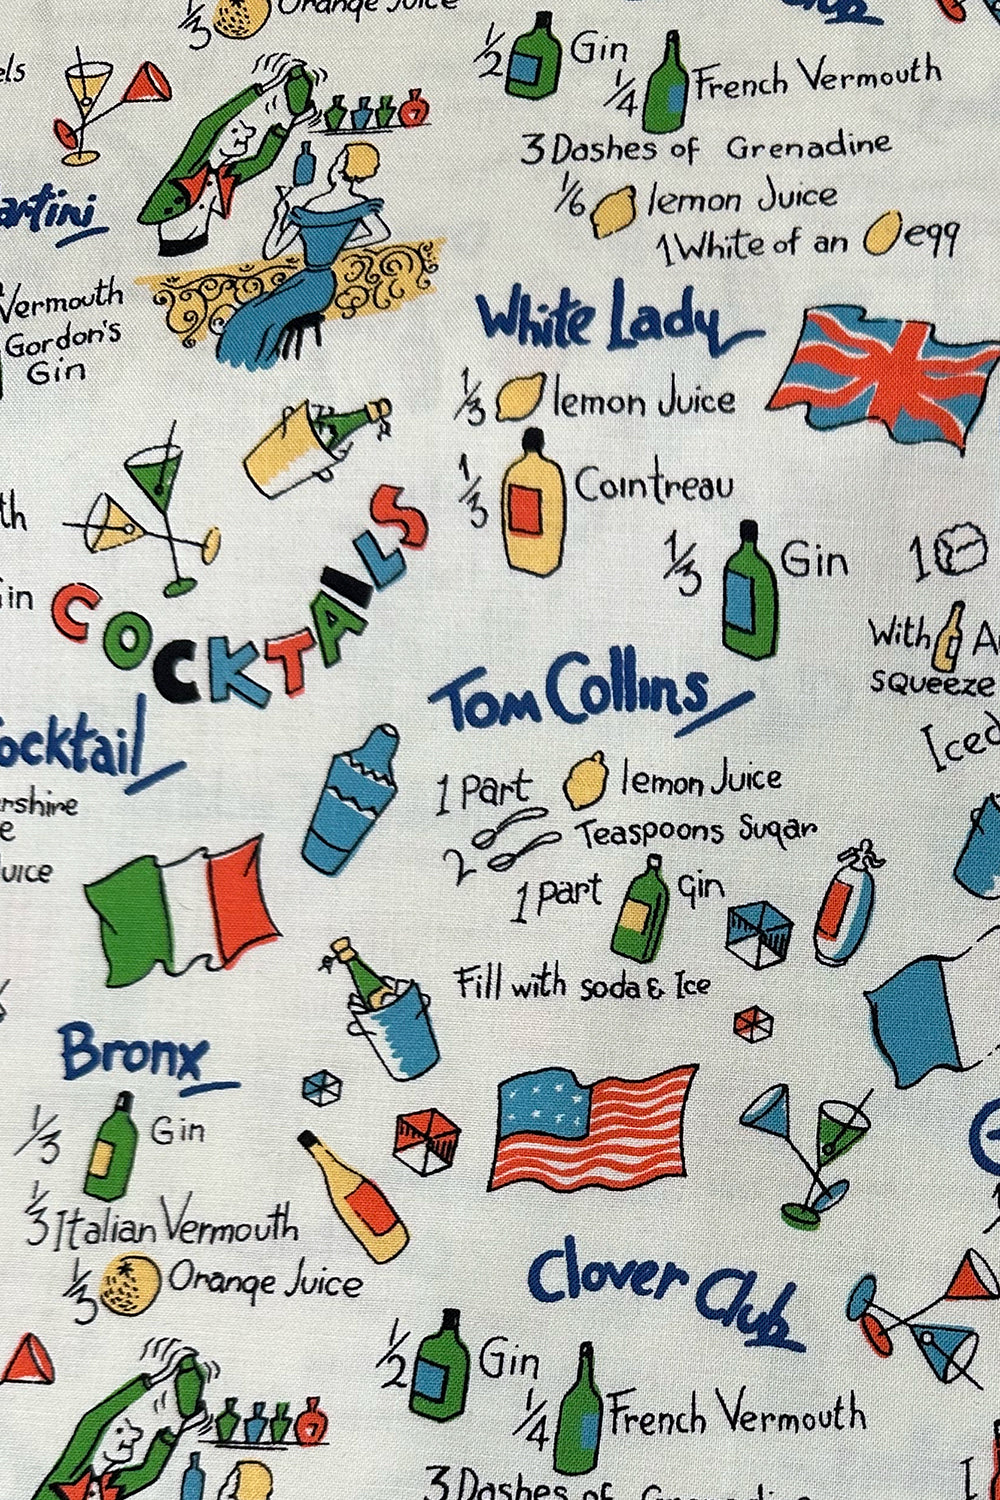 1/3 Orange Juice
els
Club
1/2 Gin
1/4 French Vermouth
3 Dashes of Grenadine
1/6 lemon Juice
1 White of an egg
artini
Vermouth
Gordon's
Gin
White Lady
1/3 lemon Juice
1/3 Cointreau
1/3 Gin
th
in
COCKTAILS
1
With A
squeeze
Iced
Tom Collins
1 Part lemon Juice
2 Teaspoons Sugar
1 Part gin
Fill with soda & Ice
ocktail
rshire
e
uice
Bronx
1/3 Gin
1/3 Italian Vermouth
1/3 Orange Juice
Clover Club
1/2 Gin
1/4 French Vermouth
3 Dashes of Grenadine